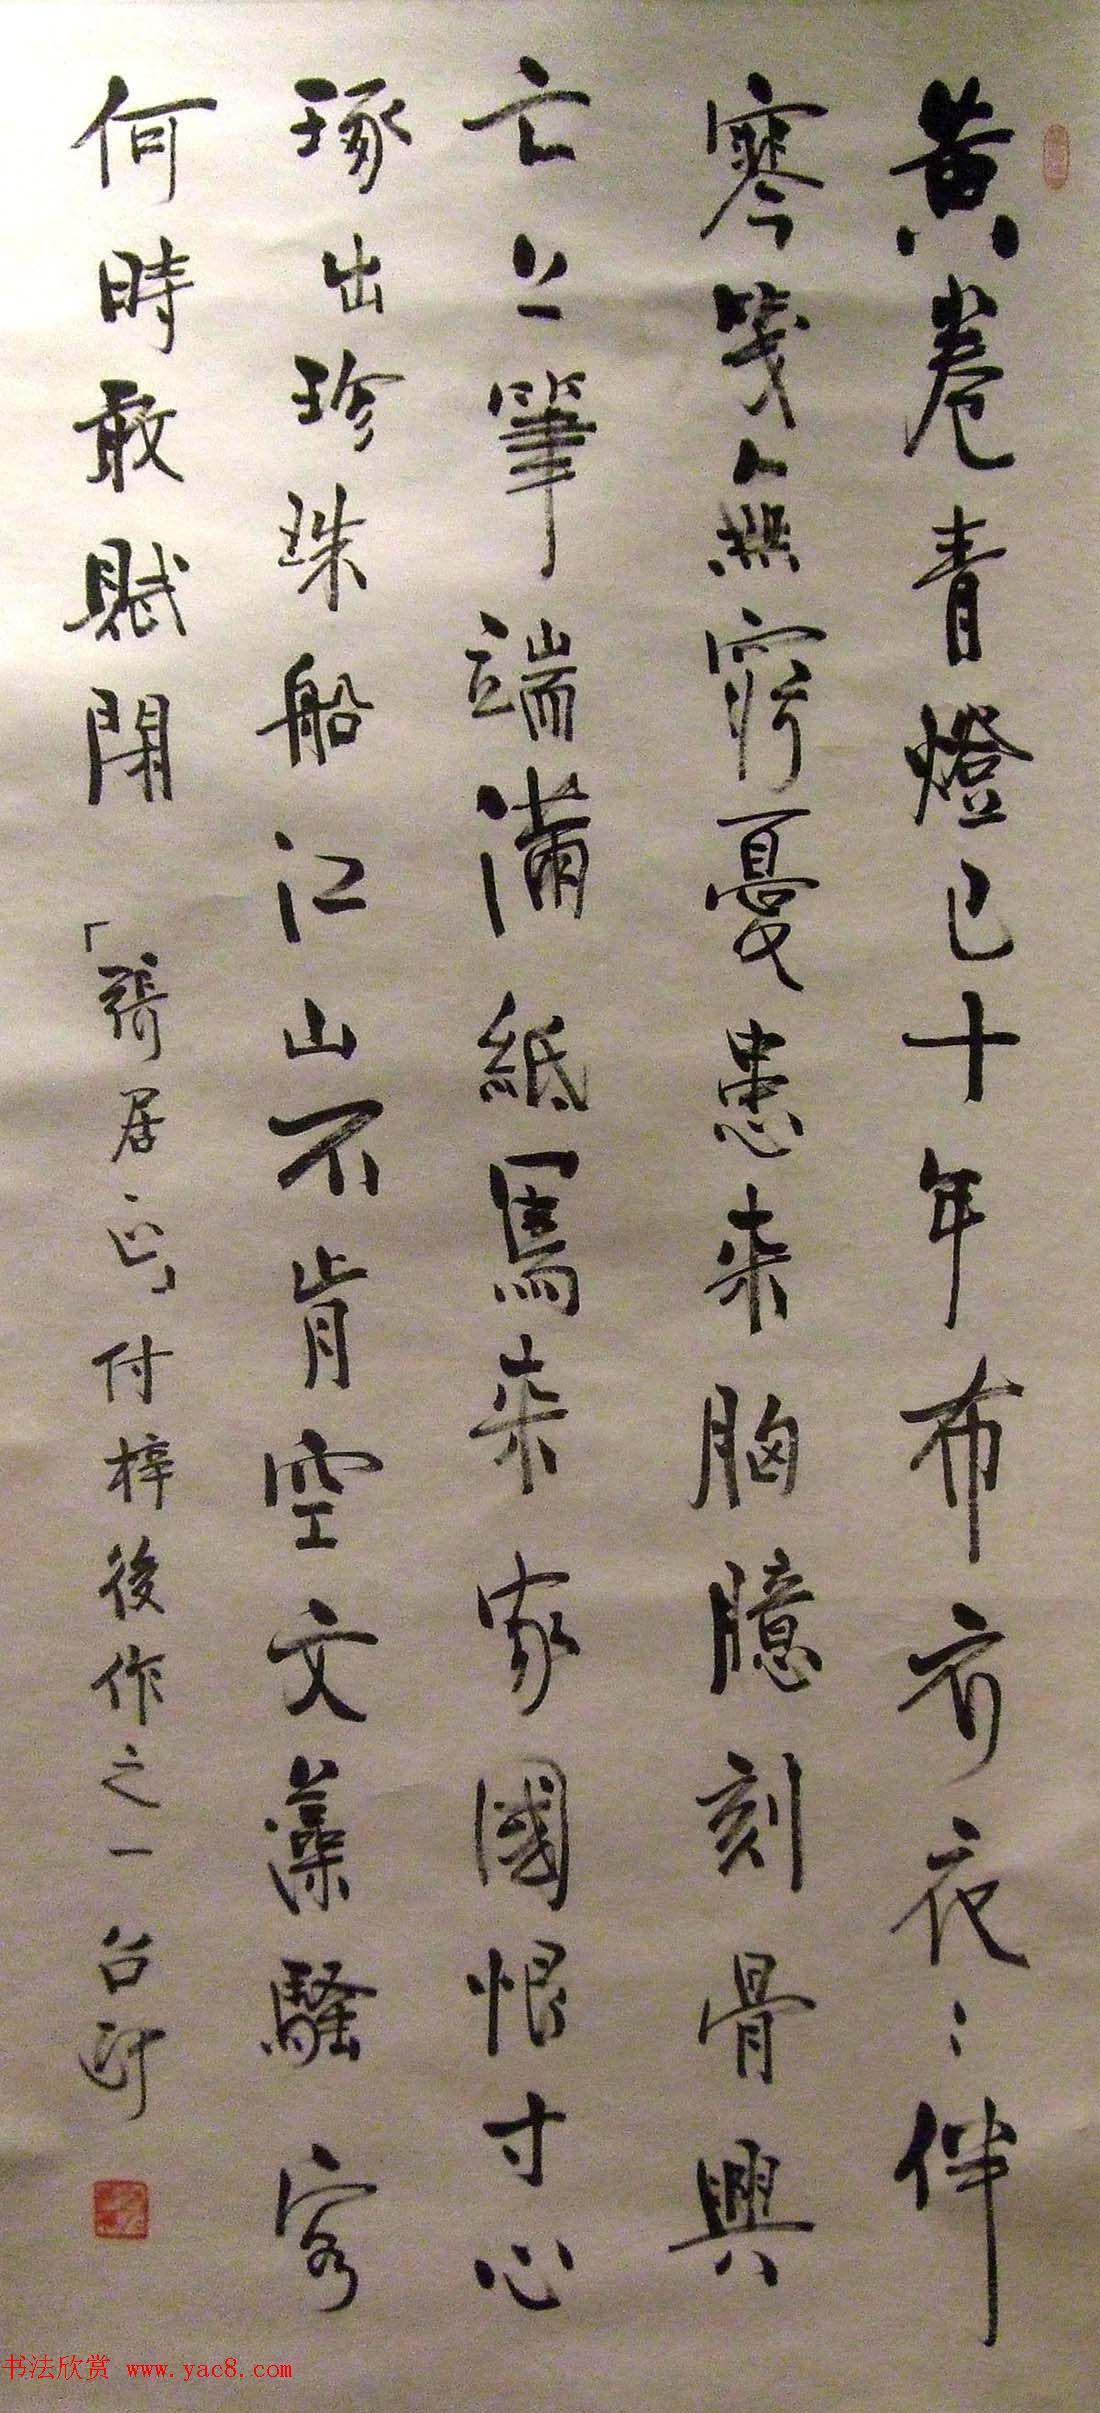 黃卷青燈已十年布衣夜〻伴
寒箋無窮憂患来胸臆刻骨興
亡上筆端滿紙寫来家國恨寸心
琢出珍珠船江山不肯空文藻騷客
何時敢賦閑「張居正」付梓後作之一召政
书法欣赏 www.yac8.com